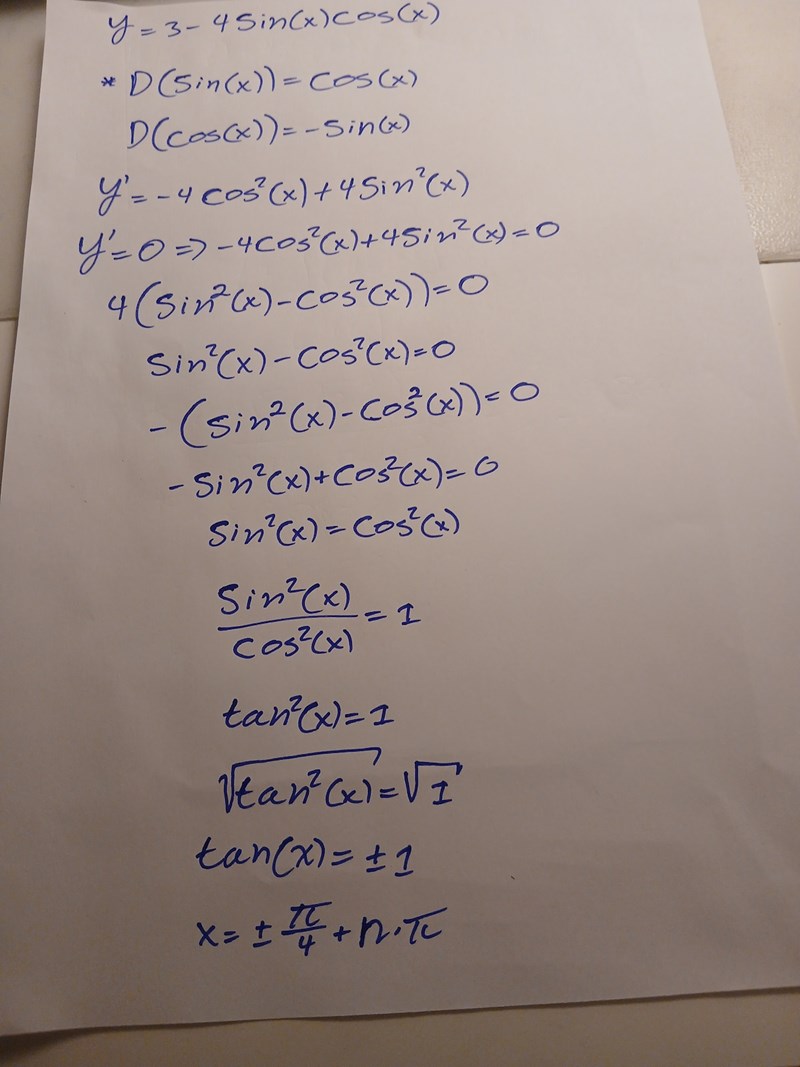 y = 3 - 4 Sin(x) cos(x)
* D(Sin(x)) = cos(x)
D(cos(x)) = - Sin(x)
y' = - 4 cos²(x) + 4 Sin²(x)
y' = 0 => - 4 cos²(x) + 4 Sin²(x) = 0
4 (Sin²(x) - cos²(x)) = 0
Sin²(x) - cos²(x) = 0
- (Sin²(x) - cos²(x)) = 0
- Sin²(x) + cos²(x) = 0
Sin²(x) = cos²(x)
Sin²(x) / cos²(x) = 1
tan²(x) = 1
√tan²(x) = √1
tan(x) = ± 1
x = ± π/4 + n · π